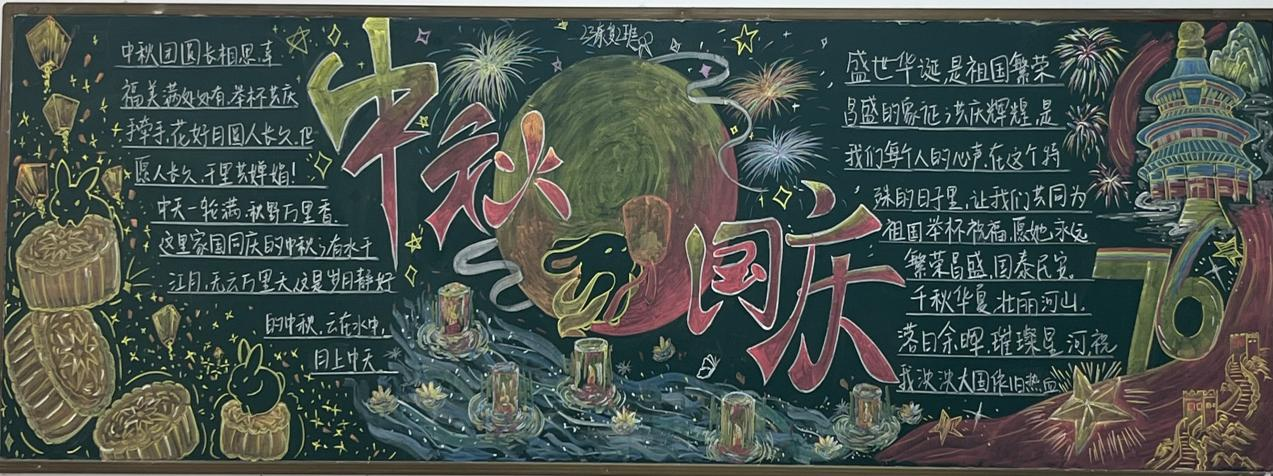 23康复2班
中秋国庆
中秋团圆长相思，幸
福美满处处有，举杯共庆
手牵手，花好月圆人长久，但
愿人长久，千里共婵娟！
中天一轮满，秋野万里香。
这里家国同庆的中秋，有水千
江月，无云万里天，这是岁月静好
的中秋，云在水中，
月上中天
盛世华诞是祖国繁荣
昌盛的象征，共庆辉煌，是
我们每个人的心声，在这个特
殊的日子里，让我们共同为
祖国举杯祝福，愿她永远
繁荣昌盛，国泰民安。
千秋华夏，壮丽河山，
落日余晖，璀璨星河，祝
我泱泱大国依旧热血
76